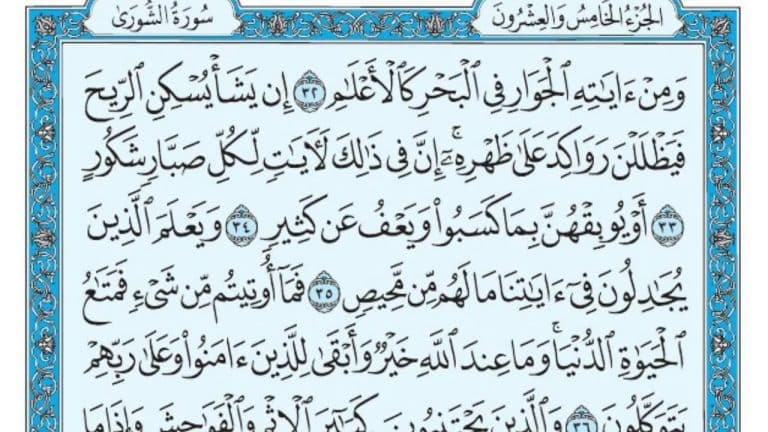 الجُزْءُ الخَامِسُ وَالعِشْرُونَ
سُورَةُ الشُّورَىٰ
وَمِنْ ءَايَٰتِهِ الْجَوَارِ فِي الْبَحْرِ كَالْأَعْلَٰمِ ٣٢ إِن يَشَأْ يُسْكِنِ الرِّيحَ
فَيَظْلَلْنَ رَوَاكِدَ عَلَىٰ ظَهْرِهِۦٓ ۚ إِنَّ فِي ذَٰلِكَ لَأٓيَٰتٍ لِّكُلِّ صَبَّارٍ شَكُورٍ
٣٣ أَوْ يُوبِقْهُنَّ بِمَا كَسَبُوا۟ وَيَعْفُ عَن كَثِيرٍ ٣٤ وَيَعْلَمَ الَّذِينَ
يُجَٰدِلُونَ فِيٓ ءَايَٰتِنَا مَا لَهُم مِّن مَّحِيصٍ ٣٥ فَمَآ أُوتِيتُم مِّن شَيْءٍ فَمَتَٰعُ
الْحَيَوٰةِ الدُّنْيَا ۖ وَمَا عِندَ اللَّهِ خَيْرٌ وَأَبْقَىٰ لِلَّذِينَ ءَامَنُوا۟ وَعَلَىٰ رَبِّهِمْ
يَتَوَكَّلُونَ ٣٦ وَالَّذِينَ يَجْتَنِبُونَ كَبَٰٓئِرَ الْإِثْمِ وَالْفَوَٰحِشَ وَإِذَا مَا